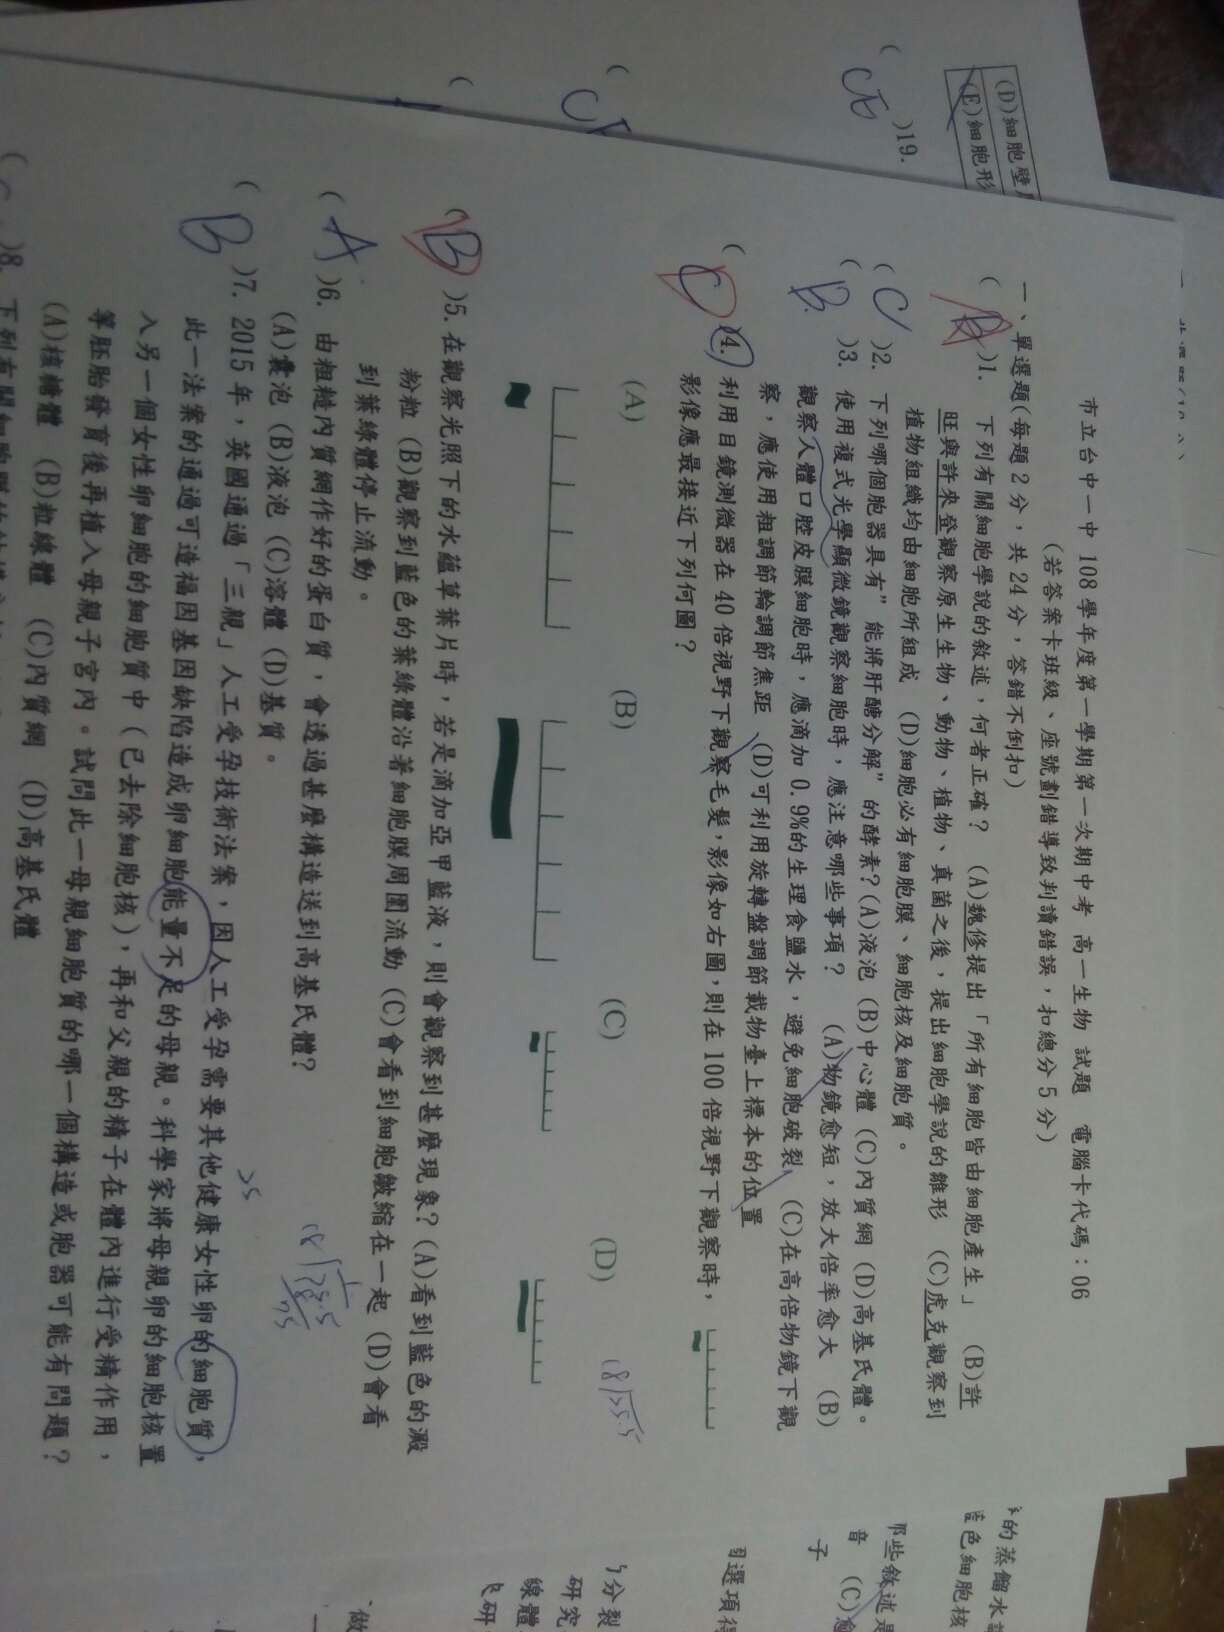 市立台中一中 108 學年度第一學期第一次期中考 高一生物 試題 電腦卡代碼：06
(若答案卡班級、座號劃錯導致判讀錯誤，扣總分 5 分)
一、單選題(每題 2 分，共 24 分，答錯不倒扣)
( A )1. 下列有關細胞學說的敘述，何者正確？ (A)魏修提出「所有細胞皆由細胞產生」 (B)許
旺與許來登觀察原生生物、動物、植物、真菌之後，提出細胞學說的雛形 (C)虎克觀察到
植物組織均由細胞所組成 (D)細胞必有細胞膜、細胞核及細胞質。
( C )2. 下列哪個胞器具有"能將肝醣分解"的酵素?(A)液泡 (B)中心體 (C)內質網 (D)高基氏體。
( B )3. 使用複式光學顯微鏡觀察細胞時，應注意哪些事項？ (A)物鏡愈短，放大倍率愈大 (B)
觀察人體口腔皮膜細胞時，應滴加 0.9%的生理食鹽水，避免細胞破裂 (C)在高倍物鏡下觀
察，應使用粗調節輪調節焦距 (D)可利用旋轉盤調節載物臺上標本的位置
( C )4. 利用目鏡測微器在 40 倍視野下觀察毛髮,影像如右圖,則在 100 倍視野下觀察時，
影像應最接近下列何圖？
(A) (B) (C) (D)
18 25.5
( B )5. 在觀察光照下的水蘊草葉片時，若是滴加亞甲藍液，則會觀察到甚麼現象？(A)看到藍色的澱
粉粒 (B)觀察到藍色的葉綠體沿著細胞膜周圍流動 (C)會看到細胞皺縮在一起 (D)會看
到葉綠體停止流動。
( A )6. 由粗糙內質網作好的蛋白質，會透過甚麼構造送到高基氏體？
(A)囊泡 (B)液泡 (C)溶體 (D)基質。
( B )7. 2015 年，英國通過「三親」人工受孕技術法案，因人工受孕需要其他健康女性卵的細胞質，
此一法案的通過可造福因基因缺陷造成卵細胞能量不足的母親。科學家將母親卵的細胞核置
入另一個女性卵細胞的細胞質中（已去除細胞核），再和父親的精子在體內進行受精作用，
等胚胎發育後再植入母親子宮內。試問此一母親細胞質的哪一個構造或胞器可能有問題？
(A)核糖體 (B)粒線體 (C)內質網 (D)高基氏體
)8.
(D)細胞壁
(E)細胞形
( CE )19.
的蒸餾水
色細胞核
那些敘述是
音 (C)
子
選項得
分裂
研究
線體
研
做